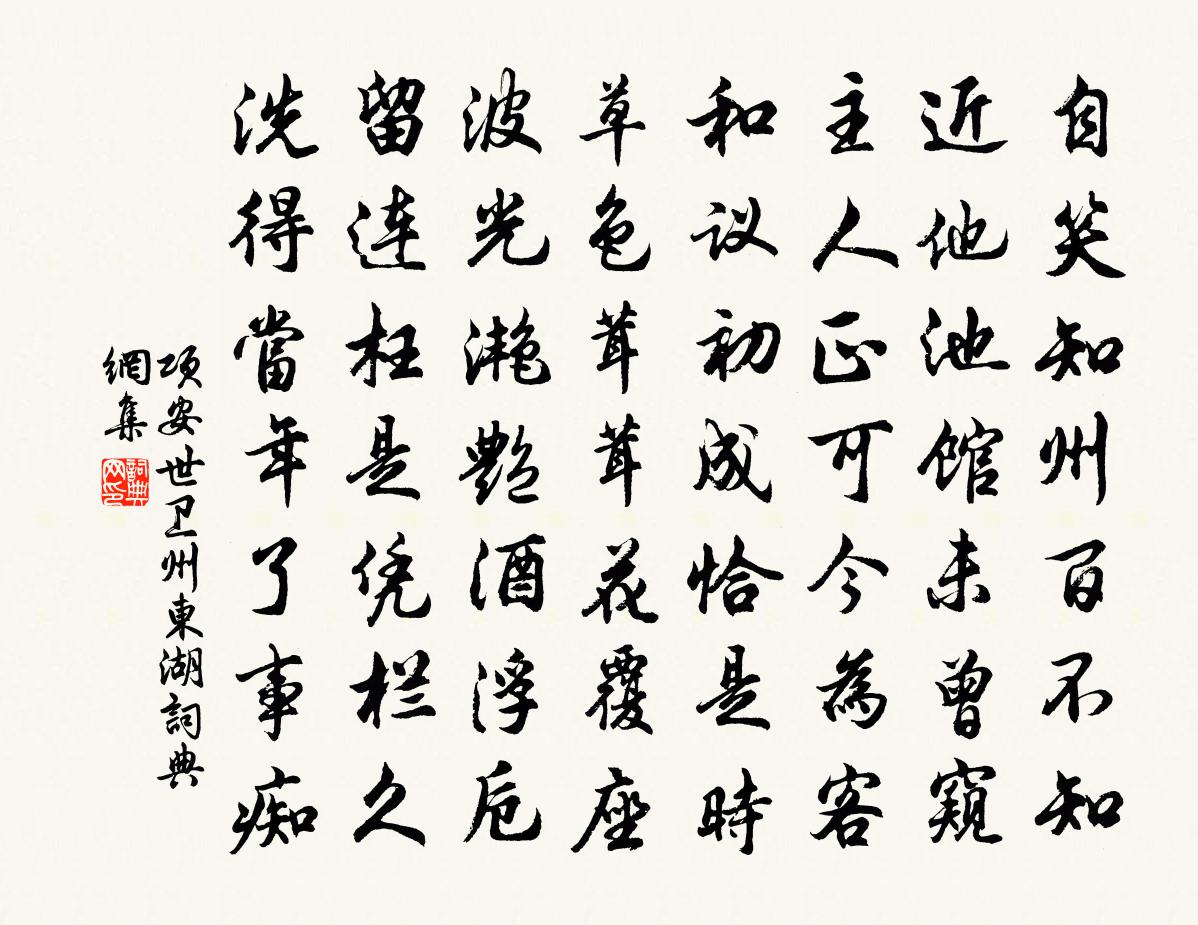 自笑知州百不知
近他池館未曾窺
主人正可今為客
和议初成恰是時
草色茸茸花覆座
波光滟艷酒浮卮
留连枉是凭栏久
洗得當年了事痴
項安世卫州東湖詞典
網集
詞典网印